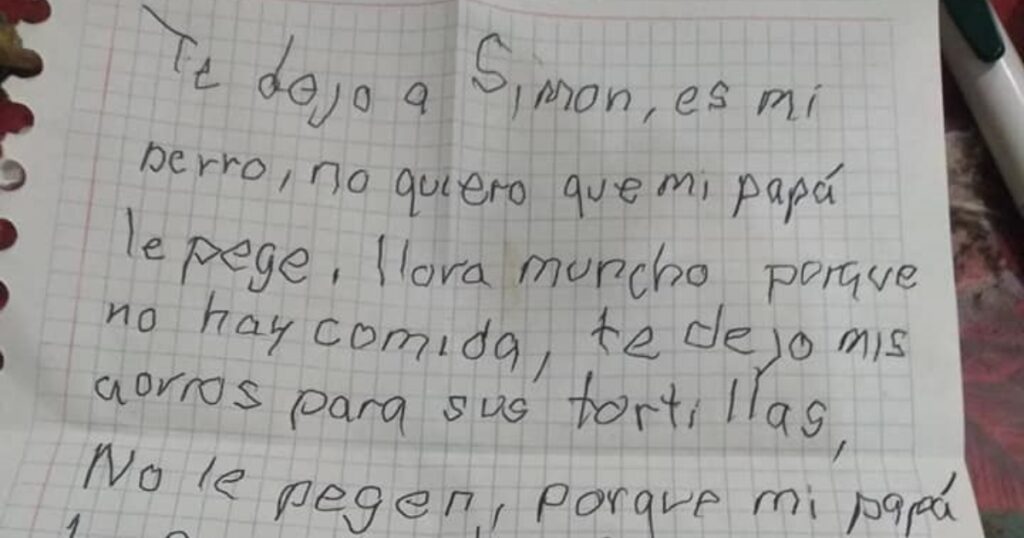 Te dejo a Simon, es mi
perro, no quiero que mi papá
le pege, llora muncho porque
no hay comida, te dejo mis
aorros para sus tortillas,
No le pegen, porque mi papá